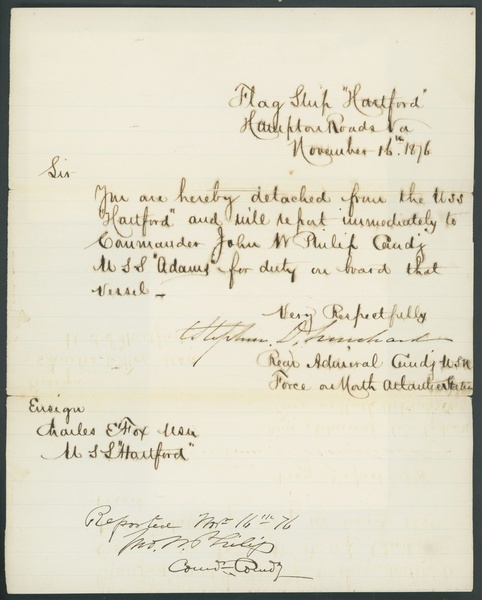 Flag Ship "Hartford"
Hampton Roads Va
November 16th. 1876
Sir
You are hereby detached from the U S S
"Hartford" and will report immediately to
Commander John W Philip Comd'g
U S S "Adams" for duty on board that
vessel —
Very Respectfully
Stephen D. Trenchard
Rear Admiral Comd'g U.S.N
Force on North Atlantic Station
Ensign
Charles E Fox USN
U S S "Hartford"
Reported Nov. 16th 76
Jno. W. Philip
Comd'r Comd'g